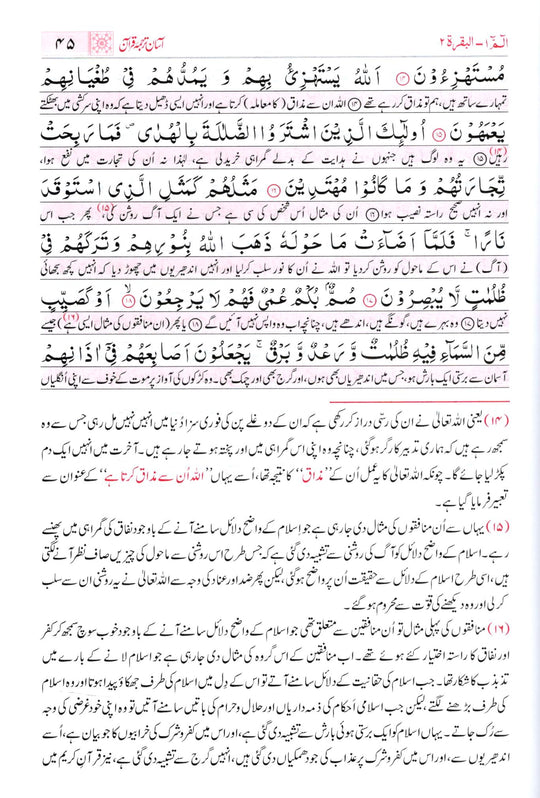 الٓمّٓ ۱ – البقرة ۲
آسان ترجمۂ قرآن
۴۵
مُسْتَهْزِءُوْنَ ۝۱۴ اَللّٰهُ يَسْتَهْزِئُ بِهِمْ وَ يَمُدُّهُمْ فِيْ طُغْيَانِهِمْ
تمہارے ساتھ ہیں، ہم تو مذاق کر رہے تھے ﴿۱۴﴾ اللہ ان سے مذاق (کا معاملہ) کرتا ہے اور انہیں ایسی ڈھیل دیتا ہے کہ وہ اپنی سرکشی میں بھٹکتے
يَعْمَهُوْنَ ۝۱۵ اُولٰٓئِكَ الَّذِيْنَ اشْتَرَوُا الضَّلٰلَةَ بِالْهُدٰى ۪ فَمَا رَبِحَتْ
رہیں (۱۴) ﴿۱۵﴾ یہ وہ لوگ ہیں جنہوں نے ہدایت کے بدلے گمراہی خرید لی ہے، لہٰذا نہ اُن کی تجارت میں نفع ہوا،
تِّجَارَتُهُمْ وَ مَا كَانُوْا مُهْتَدِيْنَ ۝۱۶ مَثَلُهُمْ كَمَثَلِ الَّذِي اسْتَوْقَدَ
اور نہ انہیں صحیح راستہ نصیب ہوا ﴿۱۶﴾ اُن کی مثال اُس شخص کی سی ہے جس نے ایک آگ روشن کی (۱۵)، پھر جب اس
نَارًا ۚ فَلَمَّاۤ اَضَآءَتْ مَا حَوْلَهٗ ذَهَبَ اللّٰهُ بِنُوْرِهِمْ وَ تَرَكَهُمْ فِيْ
(آگ) نے اس کے ماحول کو روشن کر دیا تو اللہ نے اُن کا نور سلب کر لیا اور انہیں اندھیریوں میں چھوڑ دیا کہ انہیں کچھ سجھائی
ظُلُمٰتٍ لَّا يُبْصِرُوْنَ ۝۱۷ صُمٌّۢ بُكْمٌ عُمْيٌ فَهُمْ لَا يَرْجِعُوْنَ ۝۱۸ اَوْ كَصَيِّبٍ
نہیں دیتا ﴿۱۷﴾ وہ بہرے ہیں، گونگے ہیں، اندھے ہیں، چنانچہ اب وہ واپس نہیں آئیں گے ﴿۱۸﴾ یا پھر (ان منافقوں کی مثال ایسی ہے (۱۶)) جیسے
مِّنَ السَّمَآءِ فِيْهِ ظُلُمٰتٌ وَّ رَعْدٌ وَّ بَرْقٌ ۚ يَجْعَلُوْنَ اَصَابِعَهُمْ فِيْۤ اٰذَانِهِمْ
آسمان سے برستی ایک بارش ہو، جس میں اندھیریاں بھی ہوں، اور گرج بھی اور چمک بھی۔ وہ کڑکوں کی آواز پر موت کے خوف سے اپنی اُنگلیاں
(۱۴) یعنی اللہ تعالیٰ نے ان کی رسّی دراز کر رکھی ہے کہ ان کے دوغلے پن کی فوری سزا دُنیا میں انہیں نہیں مل رہی جس سے وہ
سمجھ رہے ہیں کہ ہماری تدبیر کارگر ہو گئی، چنانچہ وہ اپنی اس گمراہی میں اور پختہ ہوتے جا رہے ہیں۔ آخرت میں انہیں ایک دم
پکڑ لیا جائے گا۔ چونکہ اللہ تعالیٰ کا یہ عمل اُن کے ”مذاق“ کا نتیجہ تھا، اُسے یہاں ”اللہ اُن سے مذاق کرتا ہے“ کے عنوان سے
تعبیر فرمایا گیا ہے۔
(۱۵) یہاں سے اُن منافقوں کی مثال دی جا رہی ہے جو اِسلام کے واضح دلائل سامنے آنے کے باوجود نفاق کی گمراہی میں پھنسے
رہے۔ اِسلام کے واضح دلائل کو آگ کی روشنی سے تشبیہ دی گئی ہے کہ جس طرح اس روشنی سے ماحول کی چیزیں صاف نظر آنے لگتی
ہیں، اسی طرح اسلام کے دلائل سے حقیقت اُن پر واضح ہو گئی، لیکن پھر ضد اور عناد کی وجہ سے اللہ تعالیٰ نے یہ روشنی ان سے سلب
کر لی اور وہ دیکھنے کی قوّت سے محروم ہو گئے۔
(۱۶) منافقوں کی پہلی مثال تو اُن منافقین سے متعلق تھی جو اِسلام کے واضح دلائل سامنے آنے کے باوجود خوب سوچ سمجھ کر کفر
اور نفاق کا راستہ اختیار کئے ہوئے تھے۔ اب منافقین کے اس گروہ کی مثال دی جا رہی ہے جو اسلام لانے کے بارے میں
تذبذب کا شکار تھا۔ جب اسلام کی حقانیت کے دلائل سامنے آتے تو اس کے دِل میں اسلام کی طرف جھکاؤ پیدا ہوتا اور وہ اسلام
کی طرف بڑھنے لگتے، لیکن جب اسلامی اَحکام کی ذمہ داریاں اور حلال و حرام کی باتیں سامنے آتیں تو وہ اپنی خود غرضی کی وجہ
سے رُک جاتے۔ یہاں اسلام کو ایک برستی ہوئی بارش سے تشبیہ دی گئی ہے، اور اس میں کفر و شرک کی خرابیوں کا جو بیان ہے، اُسے
اندھیریوں سے، اور اس میں کفر و شرک پر عذاب کی جو دھمکیاں دی گئی ہیں، انہیں گرج سے تشبیہ دی گئی ہے، نیز قرآنِ کریم میں